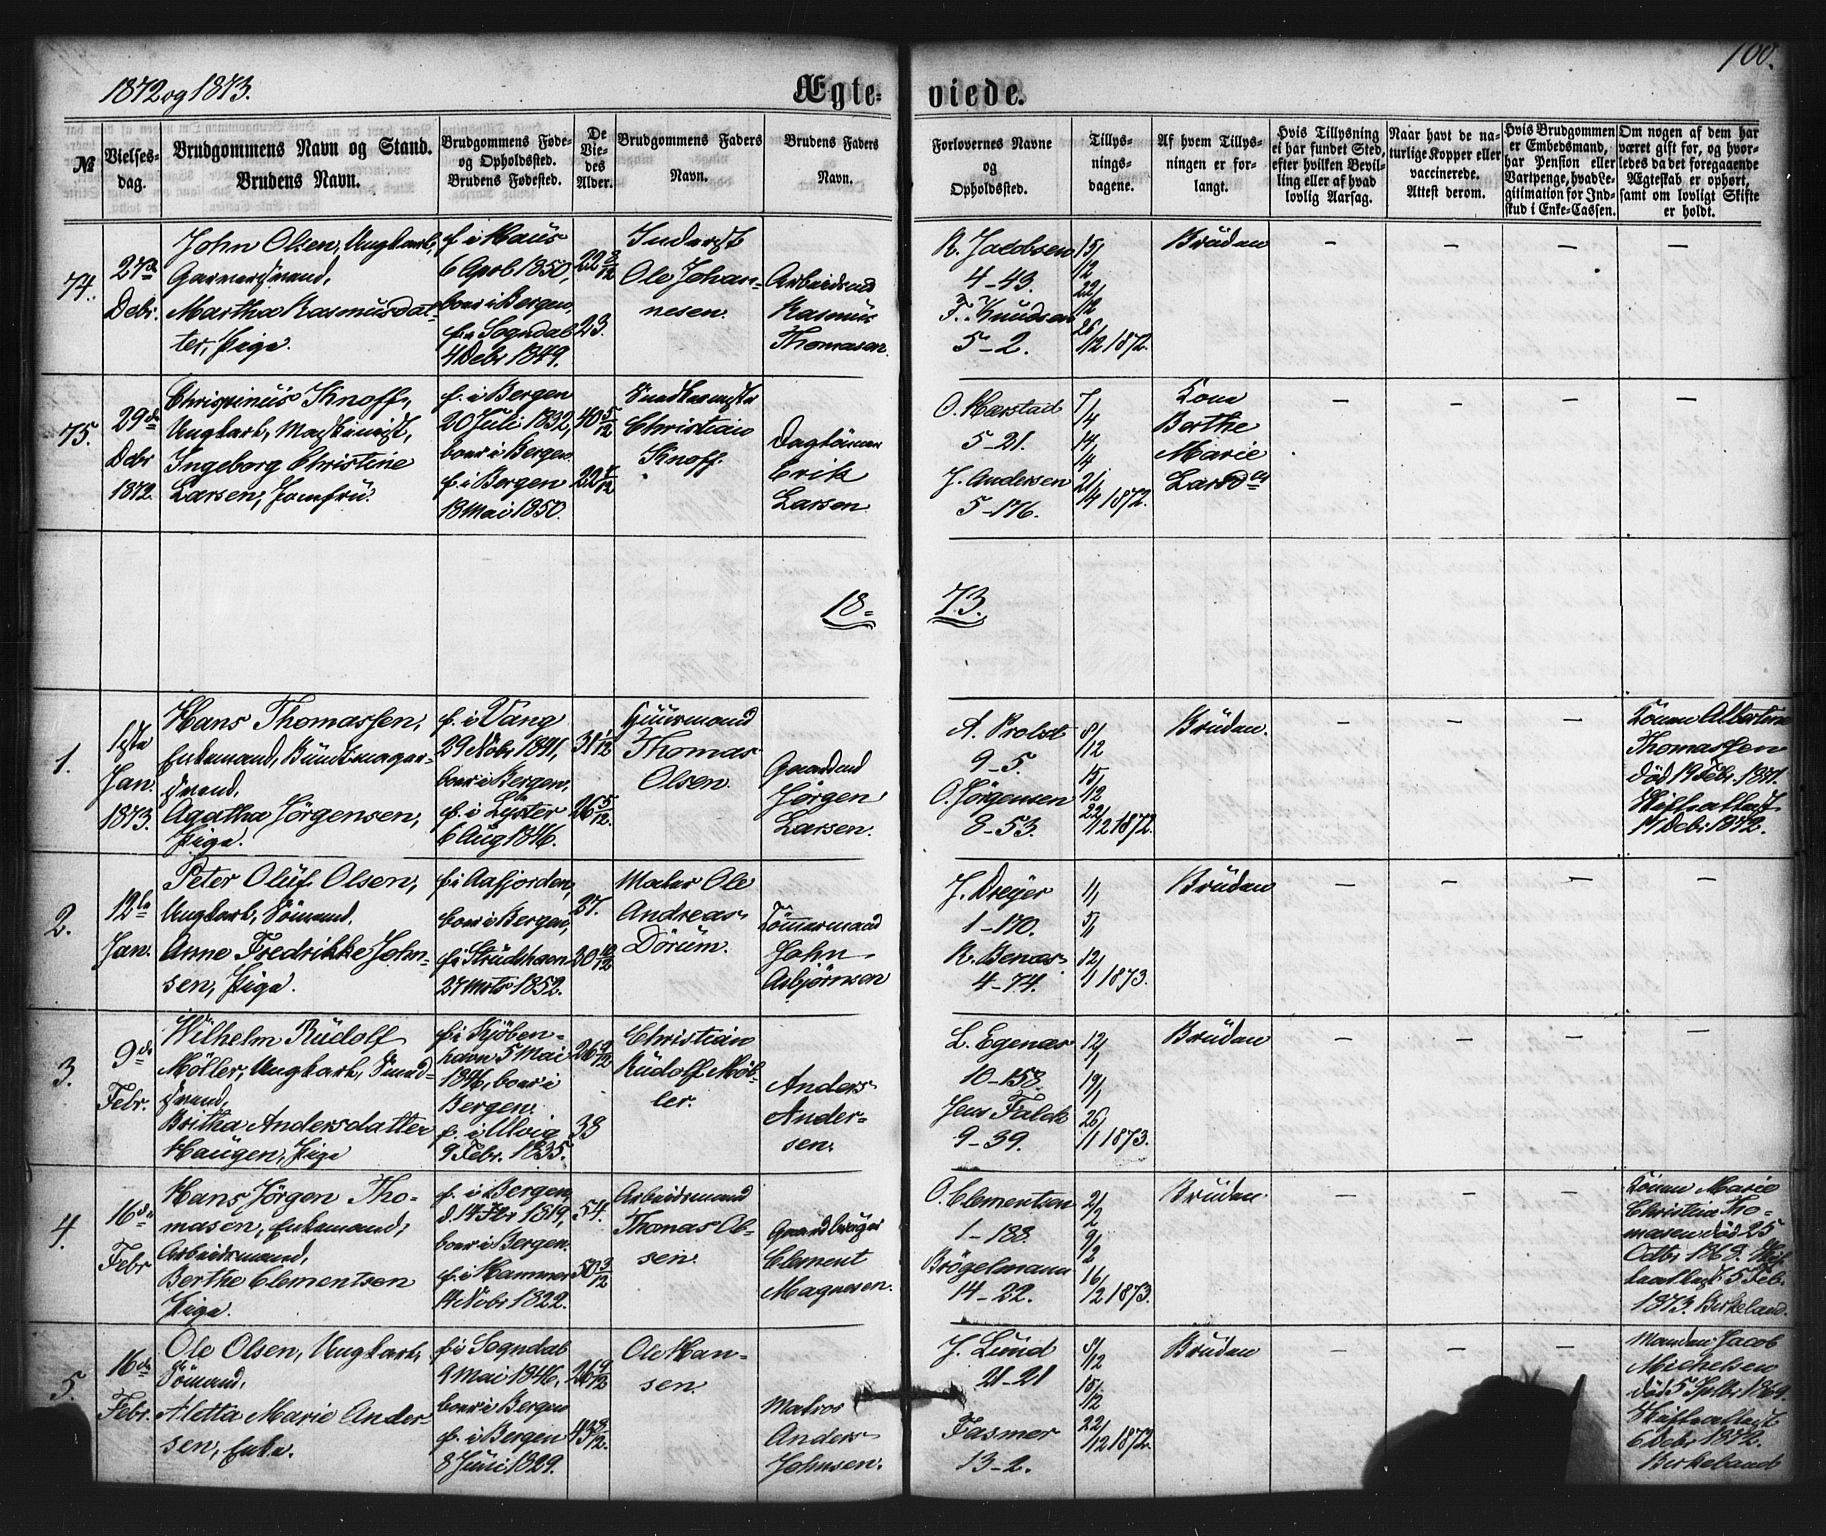 1872 og 1873.
Ægte-
viede.
100.
№
Vielses-
dag.
Brudgommens Navn og Stand.
Brudens Navn.
Brudgommens Føde-
og Opholdssted.
Brudens Fødested.
De
Vie-
des
Alder.
Brudgommens Faders
Navn.
Brudens Faders
Navn.
Forlovernes Navne
og
Opholdssted.
Tillys-
nings-
dagene.
Af hvem Tillys-
ningen er for-
langt.
Hvis Tillysning
ei har fundet Sted,
efter hvilken Bevil-
ling eller af hvad
lovlig Aarsag.
Naar havt de na-
turlige Kopper eller
vaccinerede.
Attest derom.
Hvis Brudgommen
er Embedsmand,
har Pension eller
Vartpenge, hvad Le-
gitimation for Ind-
skud i Enke-Cassen.
Om nogen af dem har
været gift før, og hvor-
ledes da det foregaaende
Ægteskab er ophørt,
samt om lovligt Skifte
er holdt.
74.
27de
Debr.
John Olsen, Ungkarl,
Garversvend,
Martha Rasmusdat-
ter, Pige.
f. i Haus
6 April 1850,
boer i Bergen,
f. i Sogndal
4 Debr 1849.
22 8/12
23.
Inderst
Ole Johan-
nesen.
Arbeidsmd
Rasmus
Thomasen
R. Jacobsen
4-43.
F. Knudsen
5-2.
15/12
22/12
26/12 1872.
Bruden
— — — —
75.
29de
Debr
1872.
Chrispinus Knoff,
Ungkarl, Maskinist,
Ingeborg Christine
Larsen, Jomfru.
f. i Bergen
20 Juli 1832,
boer i Bergen
f. i Bergen
18 Mai 1850.
40 5/12
22 7/12
Christian
Knoff.
Erik
Larsen
O. Harstad
5-21.
J. Andersen
5-176.
7/4
14/4
21/4 1872.
Kone
Berthe
Marie
Larsd
— — — —
18-
73.
1.
1ste
Jan.
1873.
Hans Thomassen,
Enkemand, Bundtmager-
svend,
Agatha Jørgensen,
Pige.
f. i Vang
29 Nobr 1841,
boer i Bergen,
f. i Lyster
6 Aug 1846.
31 1/12
26 5/12.
Huusmand
Thomas
Olsen.
Gaardmd
Jørgen
Larsen.
A. Probst
9-5.
O. Jørgensen
8-53.
8/12
15/12
22/12 1872.
Bruden.
— — —
Konen Albertine
Thomassen
død 19 Febr. 1871.
Skifteattest
17 Debr 1872.
2.
12te
Jan.
Peter Oluf Olsen,
Ungkarl, Sömand.
Anne Fredrikke John-
sen, Pige.
f. i Aafjorden,
boer i Bergen,
f. i Strudshavn
27 Marts 1852.
27.
20 10/12
Matr Ole
Andreas
Dörum.
Tömmermand
John
Asbjörnsen
J. Dreyer
1-170.
R. Benas
4-74.
1/1
5/1
12/1 1873.
Bruden
— — — —
3.
9de
Febr.
Wilhelm Rudolf
Möller, Ungkarl, Smed-
svend,
Britha Andersdatter
Haugen, Pige
f. i Kjöben-
havn 5 Mai
1846, boer i
Bergen.
f. i Ulvig
9 Febr. 1835.
26 9/12
38
Christian
Rudolf Möl-
ler.
Anders
Ander-
sen.
L. Egenæs
10-158.
Jens Falck
9-39.
12/1
19/1
26/1 1873.
Bruden
— — — —
4.
16de
Febr
Hans Jörgen Tho-
masen, Enkemand,
Arbeidsmand,
Berthe Clementsen
Pige.
f. i Bergen,
d. 14 Febr 1819,
boer i Bergen.
f. i Hammer
14 Nobr 1822.
54.
50 3/12
Arbeidsmand
Thomas Ol-
sen.
Gaardbruger
Clement
Magnesen.
O. Clementsen
1-188.
Brögelmann
14-22.
2/2
9/2
16/2 1873.
Bruden
— — —
Konen Marie
Christine Tho-
masen död 25
Octbr 1869. Skif-
teattest 5 Feb.
1873. Birkeland.
5.
16de
Febr.
Ole Olsen, Ungkarl,
Sömand,
Aletta Marie Ander
sen, Enke.
f. i Sogndal
9 Mai 1846,
boer i Bergen
f. i Bergen
8 Juni 1829.
26 9/12
43 8/12.
Ole Han-
sen.
Matros
Anders
Johnsen.
J. Lund
21-21
Fasmer
13-2.
8/12
15/12
22/12 1872.
Bruden
— — —
Manden Jacob
Michelsen
död 5 1869.
Skifteattest
6 Debr 1872.
Birkeland